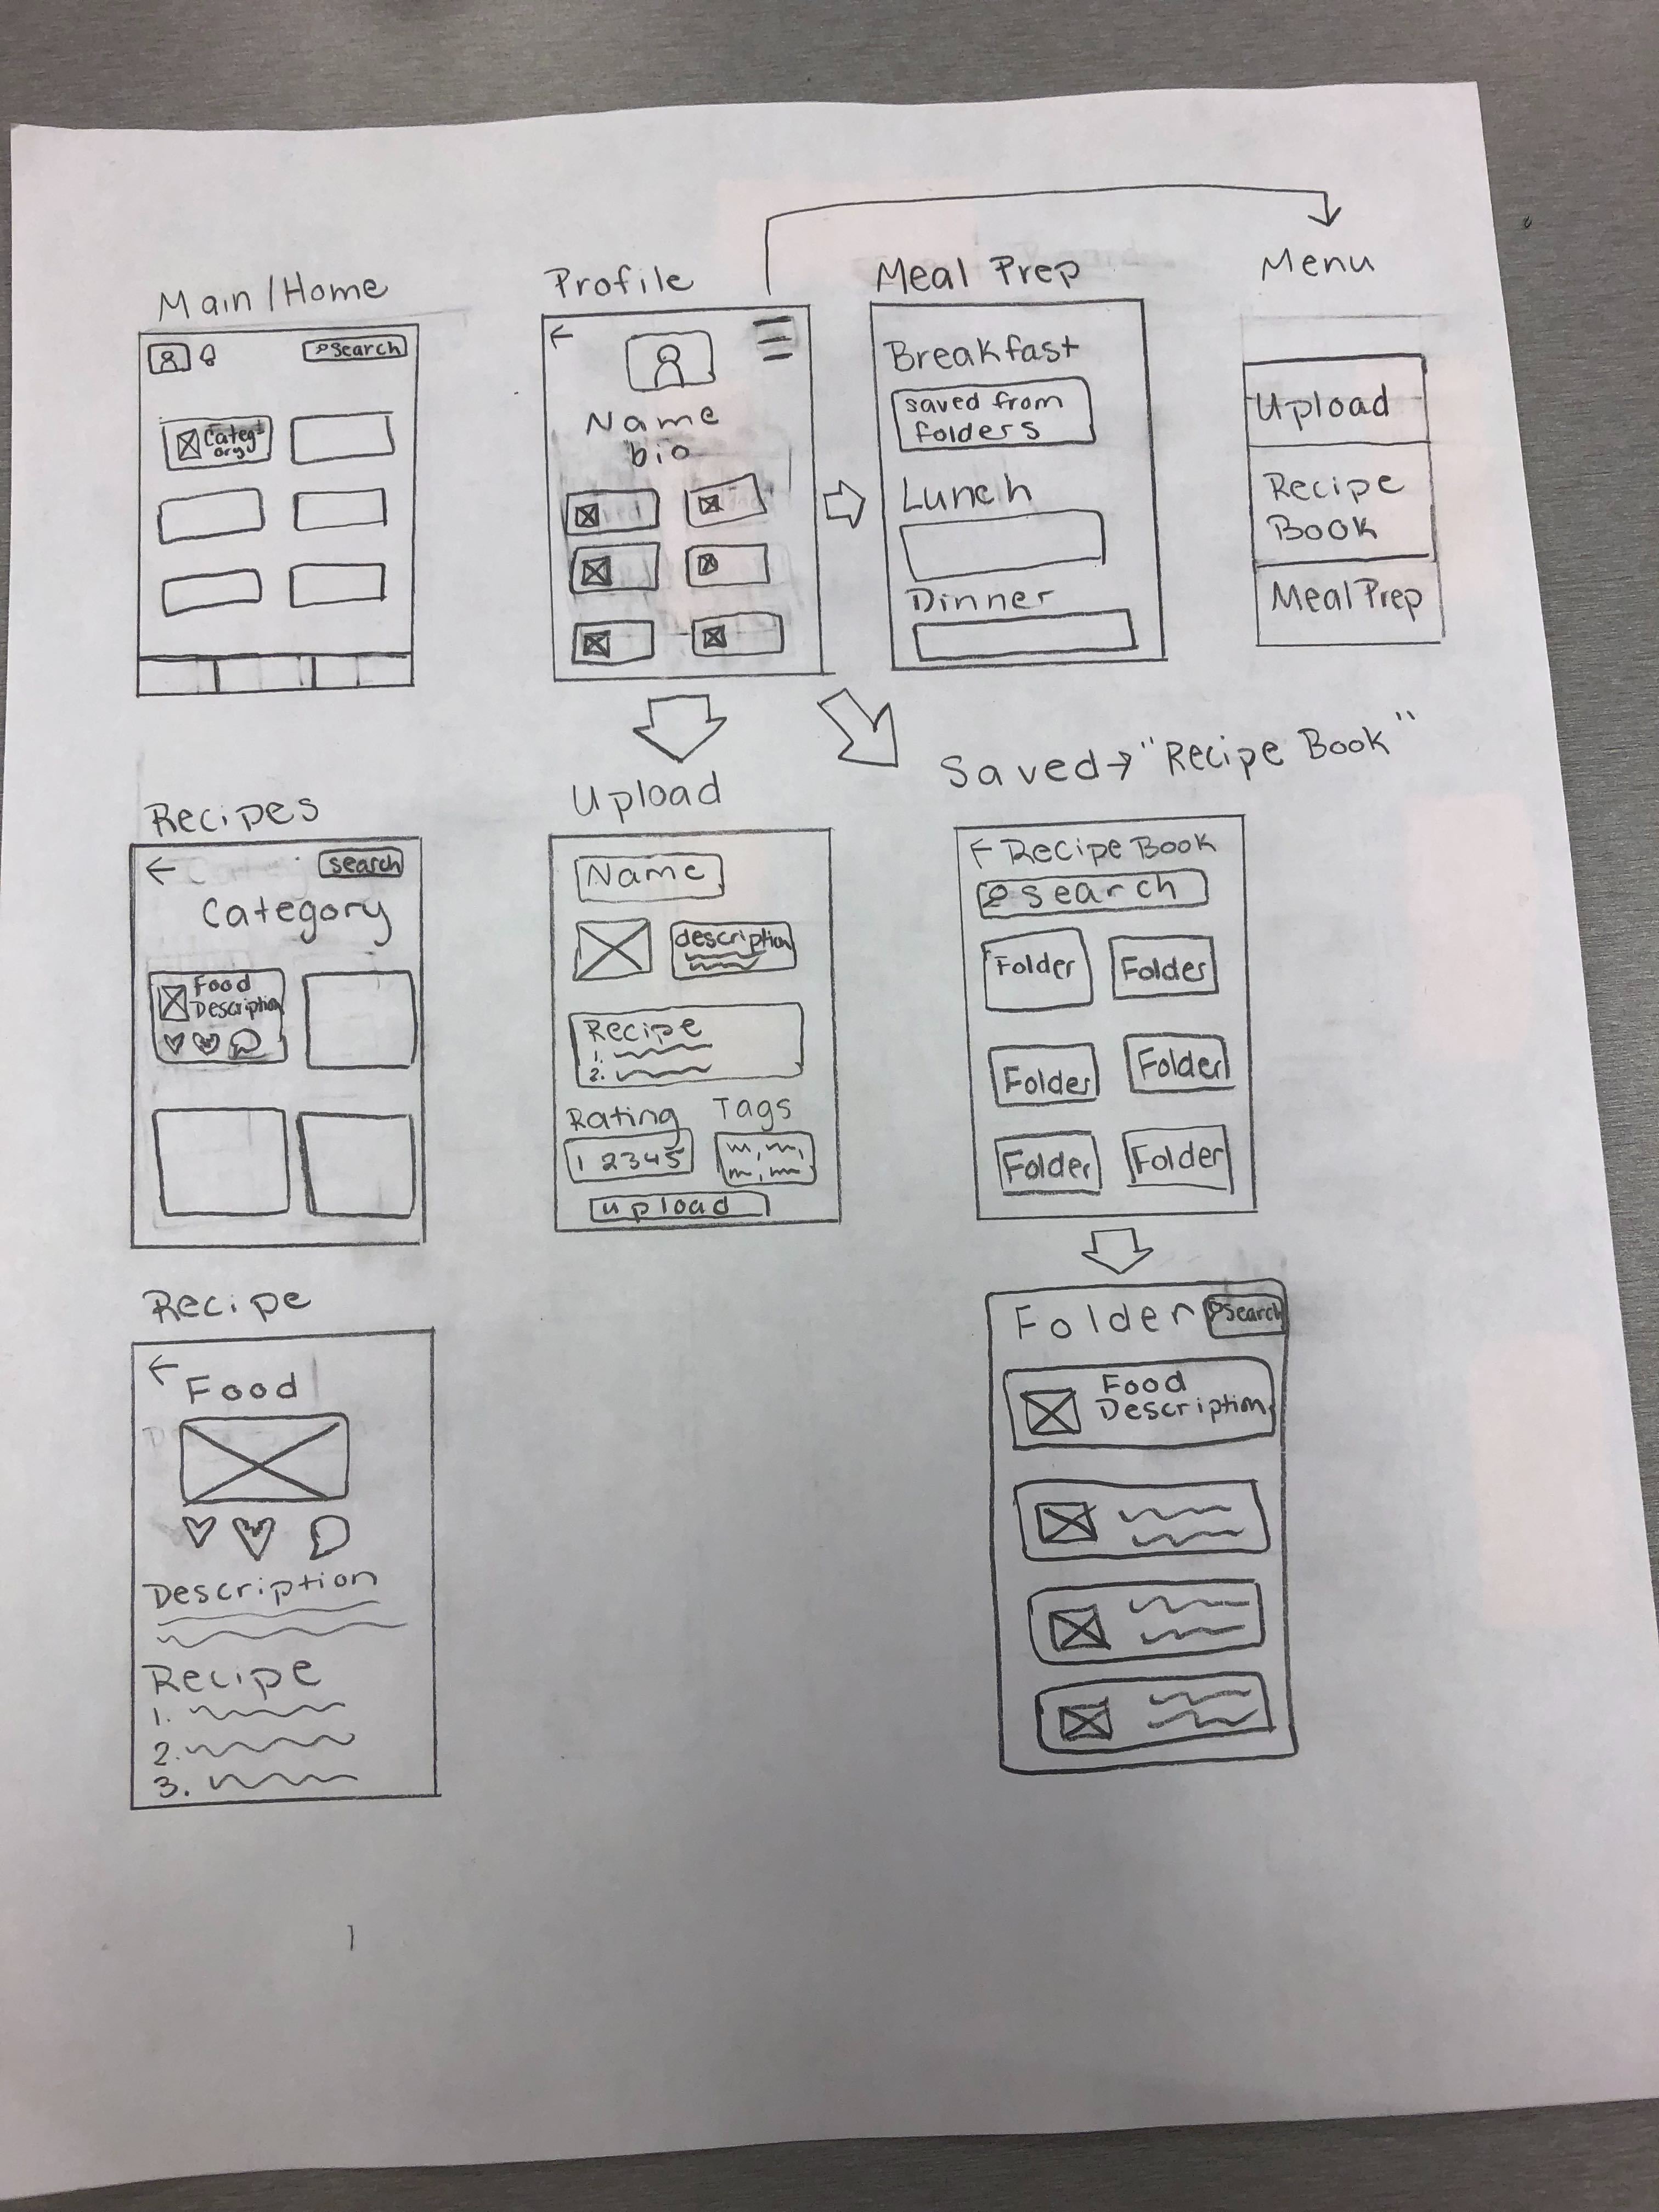 Main/Home
Search
Categ-
ory
Profile
Name
bio
Meal Prep
Breakfast
saved from
folders
Lunch
Dinner
Menu
Upload
Recipe
Book
Meal Prep
Recipes
search
Category
Food
Description
Upload
Name
description
Recipe
1.
2.
Rating
1 2345
Tags
upload
Saved→"Recipe Book"
Recipe Book
search
Folder
Folder
Folder
Folder
Folder
Folder
Folder
Search
Food
Description
Recipe
Food
Description
Recipe
1.
2.
3.